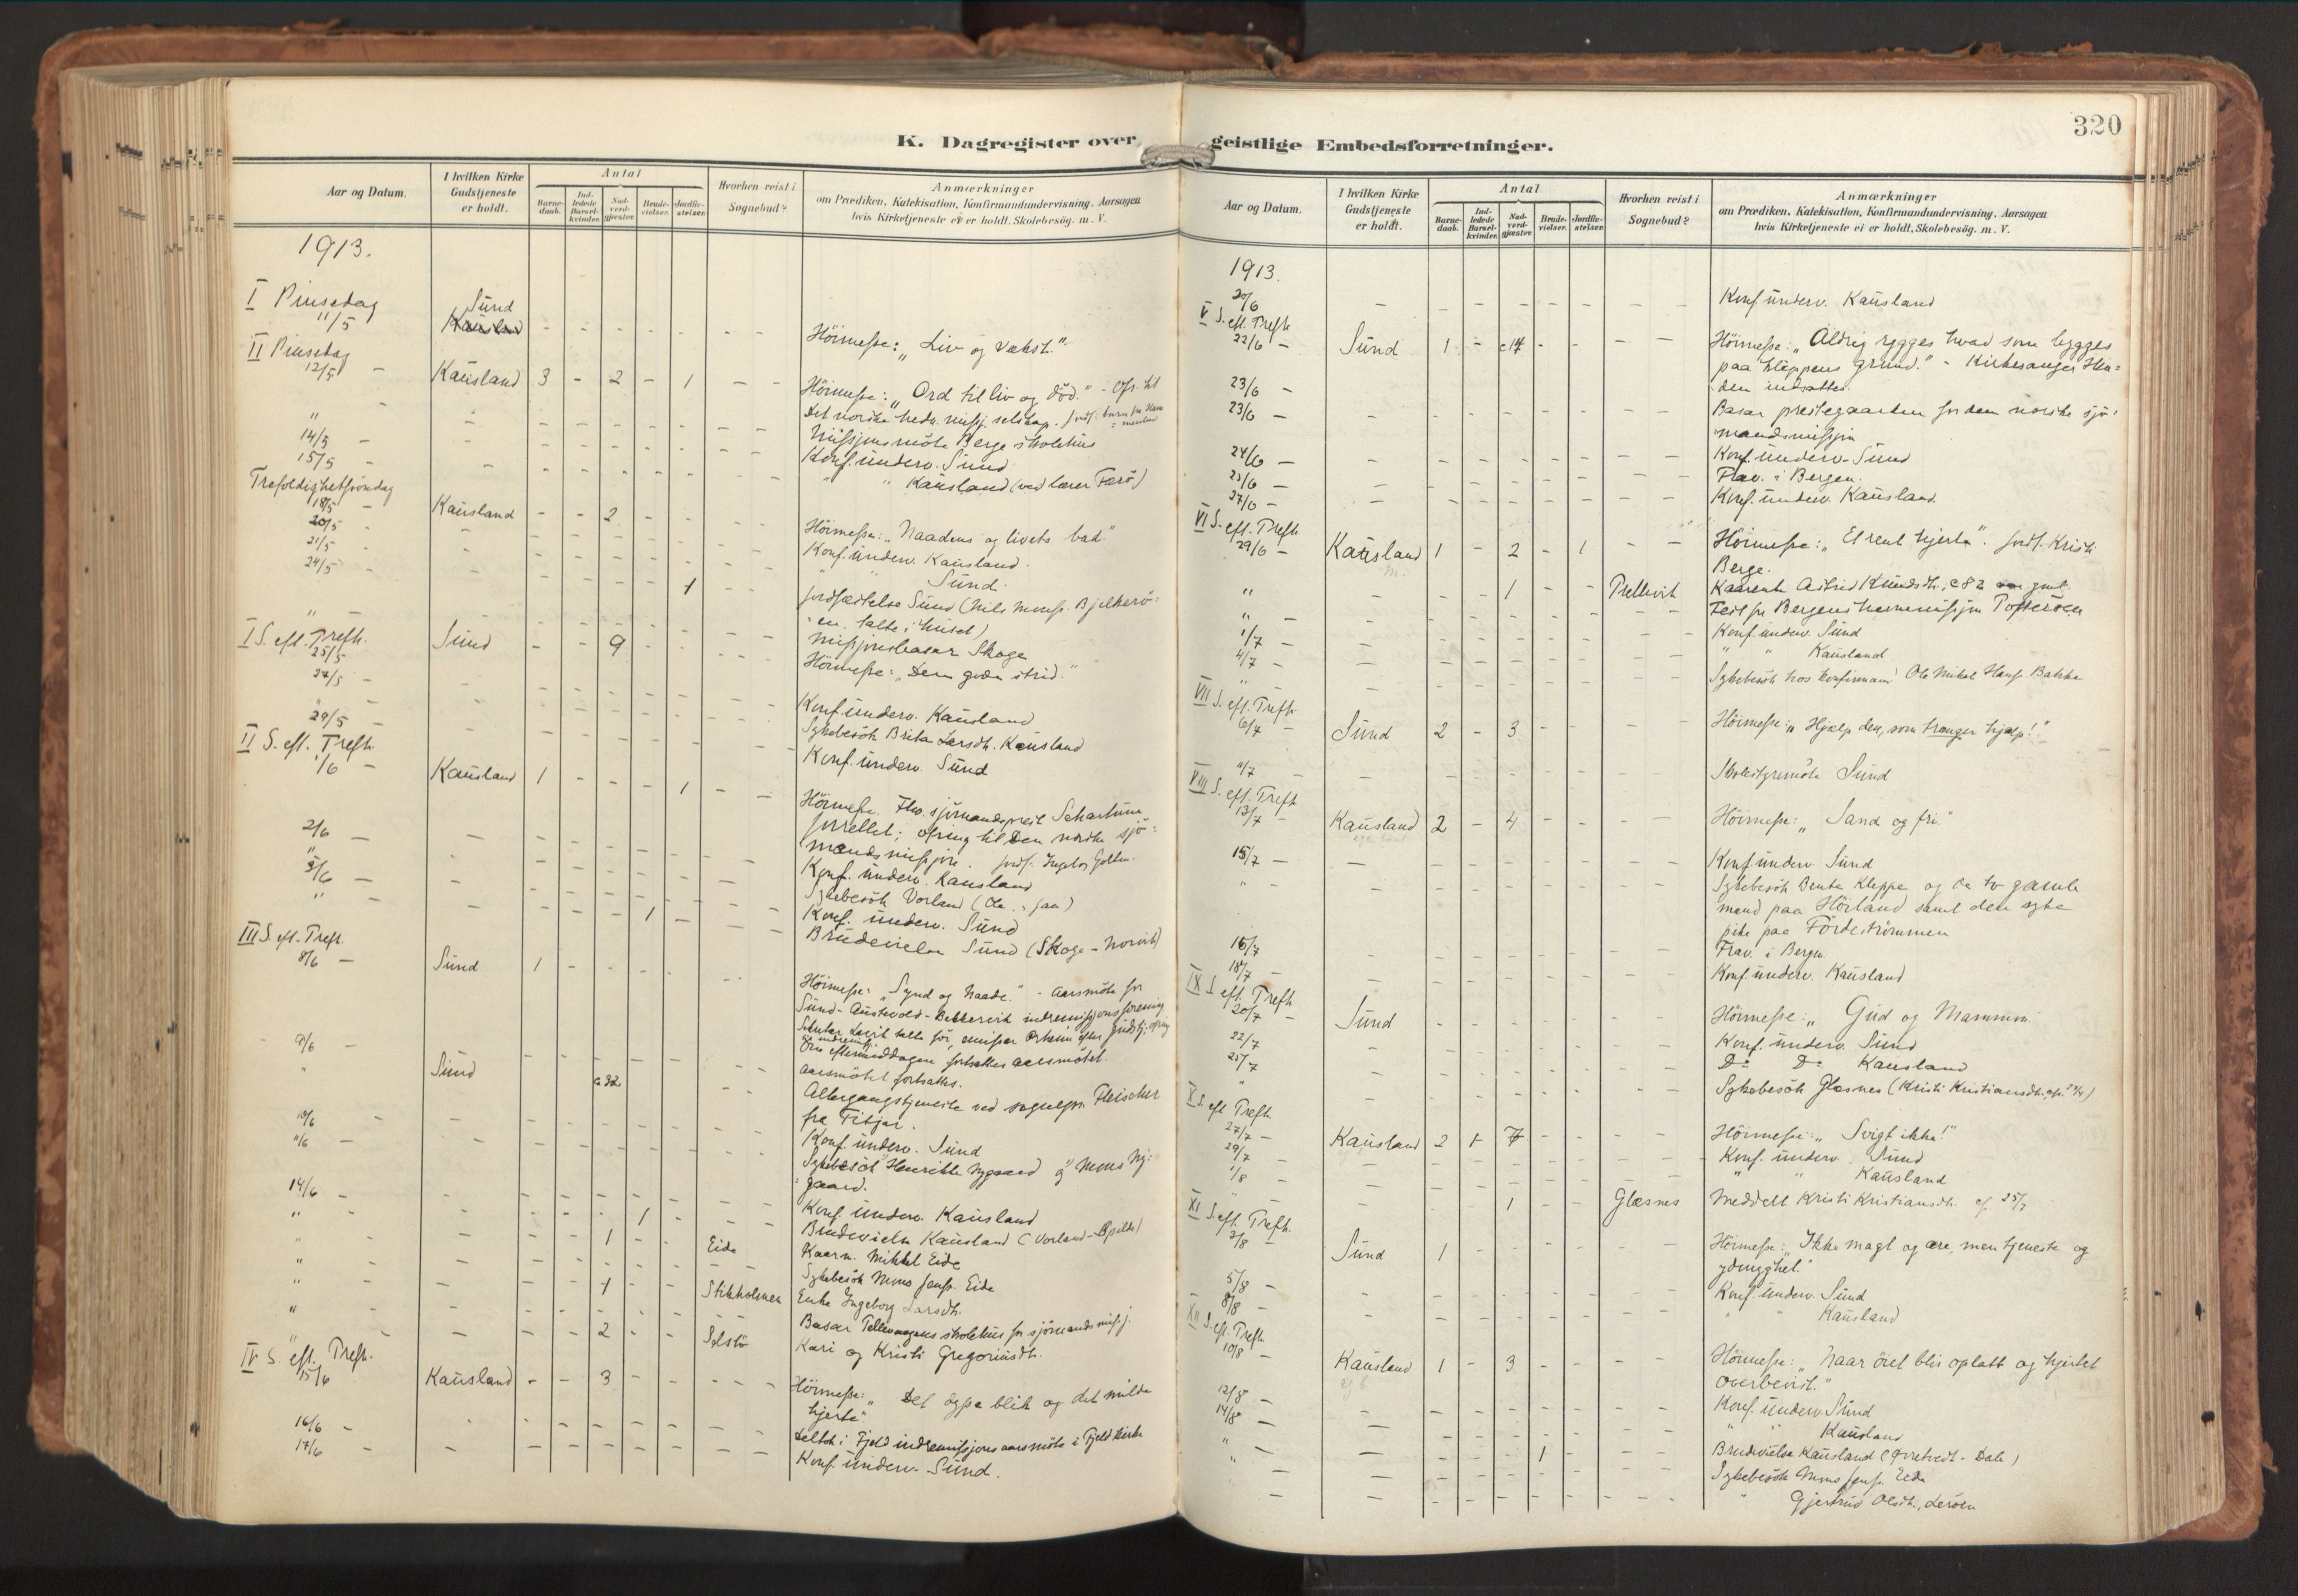 K. Dagregister over geistlige Embedsforretninger.
320
Aar og Datum.
I hvilken Kirke Gudstjeneste er holdt.
Antal
Barnedaab.
Indledede Barselkvinder.
Nadverdgjester.
Brudevielser.
Jordfæstelser.
Hvorhen reist i Sognebud?
Anmærkninger
om Prædiken, Katekisation, Konfirmandundervisning, Aarsagen
hvis Kirketjeneste ei er holdt, Skolebesög. m. V.
1913.
I Pinsedag 11/5 Sund - - - - - - -
Höimesse: „Liv og Vækst."
II Pinsedag 12/5 - Kausland 3 - 2 - 1 - -
Höimesse: „Ord til liv og död." - Ofr. til
Det norske hedn. missj. selskap.
" Missjonsmöte Berge skolehus
14/5 - Konf. underv. Sund
15/5 - " " Kausland (ved lærer Færö)
Trefoldighetssöndag 18/5 - Kausland - - 2 - - - -
Höimesse: „Naadens og livets bad"
20/5 - Konf. underv. Kausland.
21/5 - " " Sund.
24/5 - 1 Jordfæstelse Sund (Nils Monss. Bjelkerö=
en, talte i huset)
" Missjonsbasar Skoge
I S. eft. Trefh. 25/5 Sund - - 9 - - - -
Höimesse: „Den gode strid."
27/5 - Konf. underv. Kausland
" Sykebesök Brita Larsdh. Kausland
29/5 - Konf. underv. Sund
II S. eft. Trefh. 1/6 - Kausland 1 - - - 1 - -
Höimesse. Fhv. sjömandsprest Schartum
forrettet; ofring til Den norske sjö=
mandsmissjon.
2/6 - Konf. underv. Kausland
" Sykebesök Vorland
5/6 - Konf. underv. Sund
" 1 Brudevielse Sund (Skoge - Norvik)
III S. eft. Trefh. 8/6 - Sund 1 - - - - - -
Höimesse: „Synd og Naade." - Aarsmöte for
Sund - Austevold - Bekkervik indremissjonsforening
Om eftermiddagen fortsattes aarsmötet.
9/6 - Aarsmötet fortsattes.
" Sund c 32 Altergangstjeneste ved sognepr. Fleischer
fra Fitjar.
10/6 Konf. underv. Sund
11/6 - Sykebesök Henrikke Nygaard og Mons Ny=
gaard.
14/6 - Konf. underv. Kausland
" 1 Brudevielse Kausland
" 1 Eide Kaarm. Mikkel Eide
" Sykebesök Mons Jenss. Eide
" 1 Stikholmen Enke Ingeborg Larsdh.
" Basar Tellevaagens skolehus for sjömandsmissj.
" 2 Selstö Kari og Kristi Gregoriusdh.
IV S. eft. Trefh. 15/6 Kausland - - 3 - - - -
Höimesse: „Det dype blik og det milde
hjerte".
16/6 - Deltok i Fjeld indremissjons aarsmöte i Fjeld kirke
17/6 - Konf. underv. Sund.
Aar og Datum.
I hvilken Kirke Gudstjeneste er holdt.
Antal
Barnedaab.
Indledede Barselkvinder.
Nadverdgjester.
Brudevielser.
Jordfæstelser.
Hvorhen reist i Sognebud?
Anmærkninger
om Prædiken, Katekisation, Konfirmandundervisning, Aarsagen
hvis Kirketjeneste ei er holdt, Skolebesög. m. V.
1913.
20/6 - Konf. underv. Kausland
V S. eft. Trefh. 22/6 - Sund 1 - c 14 - - - -
Höimesse: „Aldrig rygges hvad som bygges
paa klippens grund." - Kirkesanger Hau=
den indsattes.
23/6 - Basar prestegaarden for den norske sjö=
23/6 - mandsmissjon
24/6 - Konf. underv. Sund
25/6 - Frav. i Bergen.
27/6 - Konf. underv. Kausland.
VI S. eft. Trefh. 29/6 - Kausland 1 - 2 - 1 - -
Höimesse: „Et rent hjerte". Jordf. Kristi
Berge.
" 1 - - Pellevik Kaarenke Astrid Knudsdh., c 82 aar gml.
" Fest for Bergens hjemmemissjon Tofteröen
1/7 - Konf. underv. Sund
4/7 - " " Kausland
" Sykebesök hos konfirmant Ole Mikal Hanss. Bakke
VII S. eft. Trefh. 6/7 - Sund 2 - 3 - - - -
Höimesse: „Hjælp den, som trænger hjælp!"
11/7 - Skolestyremöte Sund
VIII S. eft. Trefh. 13/7 - Kausland 2 - 4 - - - -
Höimesse: „Sand og fri."
15/7 - Konf. underv. Sund
" Sykebesök Bente Kleppe og de to gamle
mænd paa Hörland samt den syke
pike paa Fördeströmmen
16/7 Frav. i Bergen
18/7 - Konf. underv. Kausland
IX S. eft. Trefh. 20/7 - Sund - - - - - - -
Höimesse: „Gud og Mammon.
22/7 Konf. underv. Sund
25/7 Do Do Kausland
" Sykebesök Glæsnes
X S. eft. Trefh. 27/7 - Kausland 2 + 7 - - - -
Höimesse: „Svigt ikke!"
29/7 - Konf. underv. Sund
1/8 - " " Kausland
" 1 - - Glæsnes Meddelt Kristi Kristiansdh. cf. 25/7
XI S. eft. Trefh. 3/8 - Sund 1
Höimesse: „Ikke magt og ære, men tjeneste og
ydmyghet."
5/8 - Konf. underv. Sund
8/8 - " " Kausland
XII S. eft. Trefh. 10/8 - Kausland 1 - 3 - - - -
Höimesse: „Naar öiet blir oplatt og hjertet
overbevist."
12/8 - Konf. underv. Sund
14/8 - " " Kausland
" 1 Brudevielse Kausland
" Sykebesök Mons Jenss. Eide
" Gjertrud Olsdh., Leröen